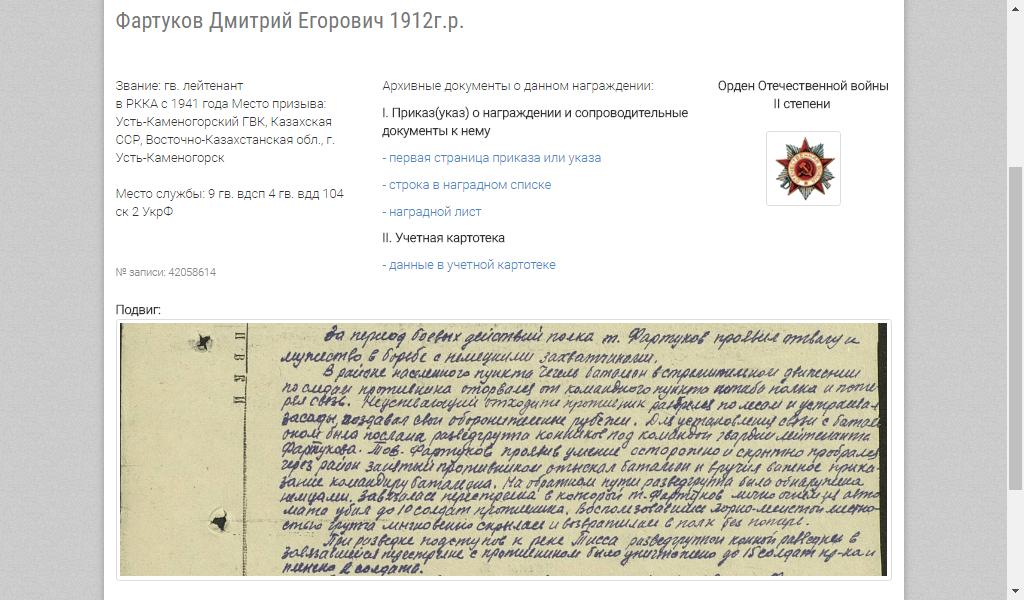 Фартуков Дмитрий Егорович 1912г.р.
Звание: гв. лейтенант
в РККА с 1941 года Место призыва:
Усть-Каменогорский ГВК, Казахская
ССР, Восточно-Казахстанская обл., г.
Усть-Каменогорск
Место службы: 9 гв. вдсп 4 гв. вдд 104
ск 2 УкрФ
№ записи: 42058614
Архивные документы о данном награждении:
I. Приказ(указ) о награждении и сопроводительные
документы к нему
- первая страница приказа или указа
- строка в наградном списке
- наградной лист
II. Учетная картотека
- данные в учетной картотеке
Орден Отечественной войны
II степени
Подвиг:
За период боевых действий полка т. Фартуков проявил отвагу и
мужество в борьбе с немецкими захватчиками.
В районе населенного пункта батальон в стремительном движении
по следам противника оторвался от командного пункта полка и поте-
рял связь. отходить противник по лесам и устраивал
засады, создавал свои оборонительные рубежи. Для установления связи с баталь-
оном была послана разведгруппа конников под командой гвардии лейтенанта
Фартукова. Тов. Фартуков проявив умение осторожно и скрытно пробрался
через район занятый противником отыскал батальон и вручил важное прика-
зание командиру батальона. На обратном пути разведгруппа была обнаружена
немцами. Завязалась перестрелка в которой т. Фартуков лично огнем из авто-
мата убил до 10 солдат противника. Воспользовавшись горно-лесистой местно-
стью группа мгновенно скрылась и возвратилась в полк без потерь.
При разведке подступов к реке Тисса разведгруппой конной разведки в
завязавшейся перестрелке с противником было уничтожено до 15 солдат пр-ка и
пленено 2 солдата.